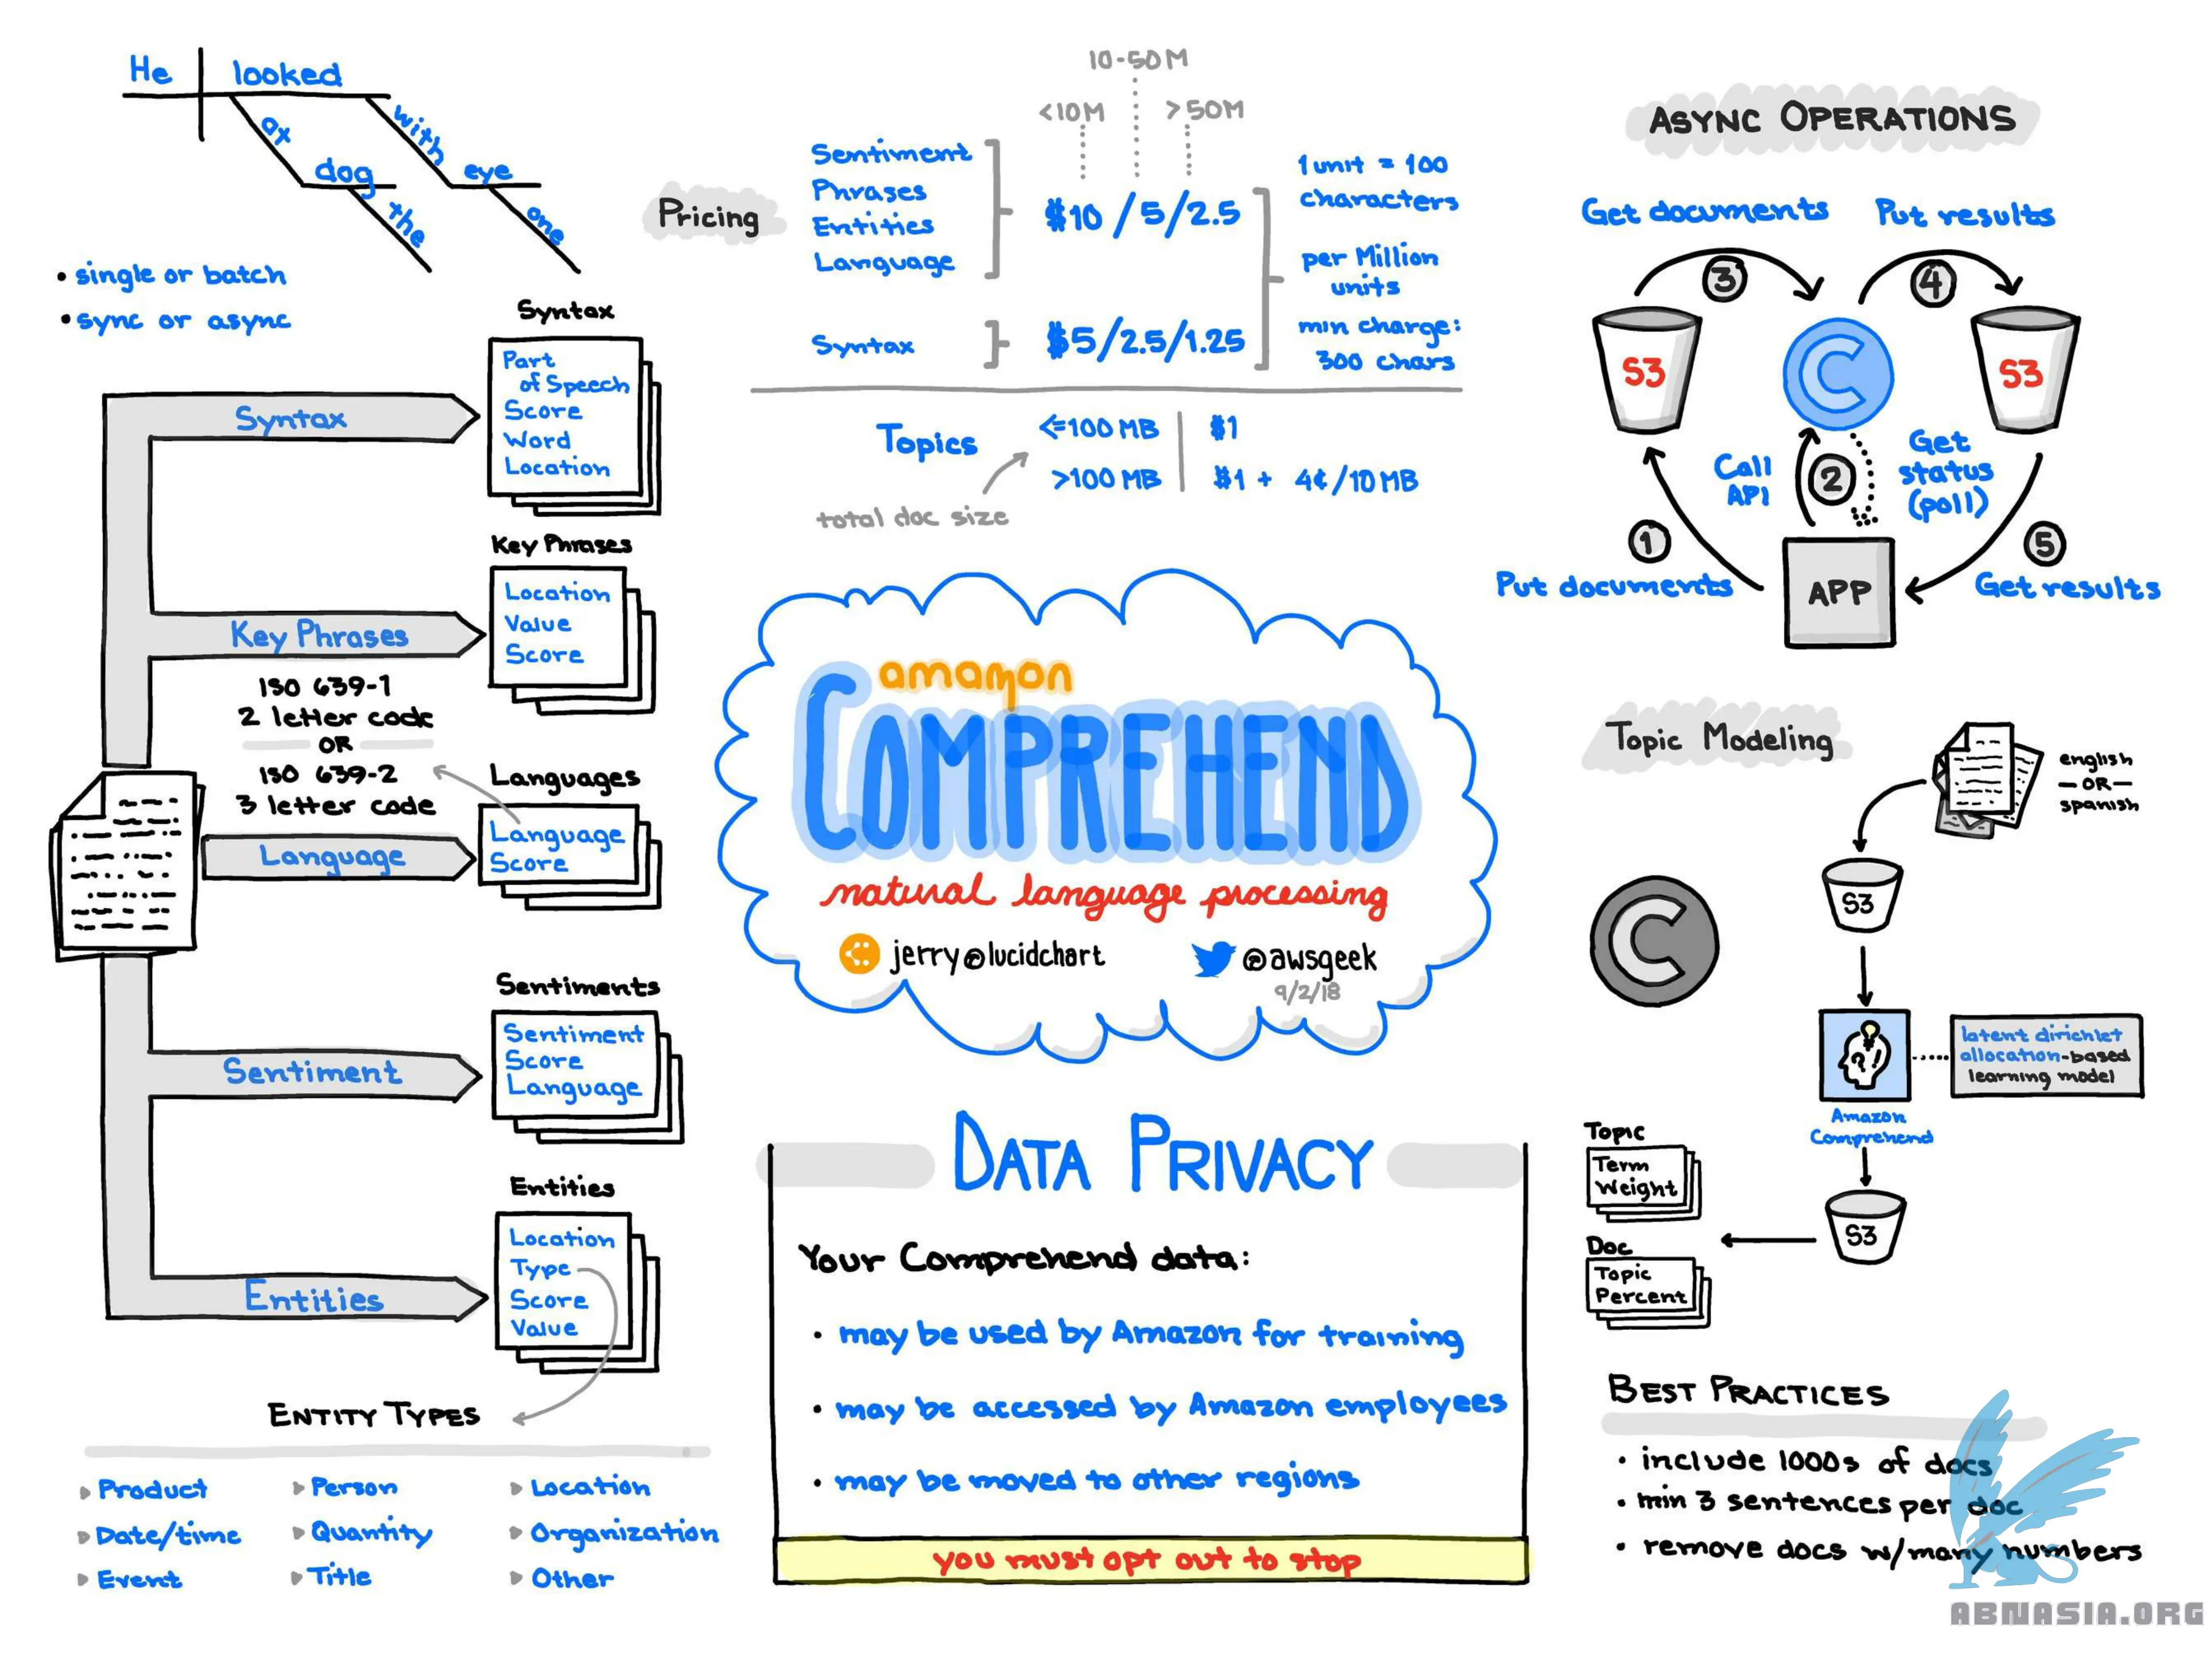 He looked
ax
dog
the
with
eye
one
• single or batch
• sync or async
Syntax
Syntax
Part
of Speech
Score
Word
Location
Key Phrases
Key Phrases
Location
Value
Score
ISO 639-1
2 letter code
OR
ISO 639-2
3 letter code
Languages
Language
Language
Score
Sentiments
Sentiment
Sentiment
Score
Language
Entities
Entities
Location
Type
Score
Value
ENTITY TYPES
Product
Person
Location
Date/time
Quantity
Organization
Event
Title
Other
Pricing
10-50M
<10M
>50M
Sentiment
Phrases
Entities
Language
$10/5/2.5
Syntax
$5/2.5/1.25
1 unit = 100
characters
per Million
units
min charge:
300 chars
Topics
<=100 MB $1
>100 MB $1 + 4¢/10 MB
total doc size
amazon
COMPREHEND
natural language processing
jerry@lucidchart
@awsgeek
9/2/18
DATA PRIVACY
Your Comprehend data:
• may be used by Amazon for training
• may be accessed by Amazon employees
• may be moved to other regions
you must opt out to stop
ASYNC OPERATIONS
Get documents
Put results
3
4
S3
C
S3
Call
API
2
Get
status
(poll)
1
5
Put documents
APP
Get results
Topic Modeling
english
-OR-
spanish
S3
C
latent dirichlet
allocation-based
learning model
Amazon
Comprehend
Topic
Term
Weight
S3
Doc
Topic
Percent
BEST PRACTICES
• include 1000s of docs
• min 3 sentences per doc
• remove docs w/many numbers
ABNASIA.ORG